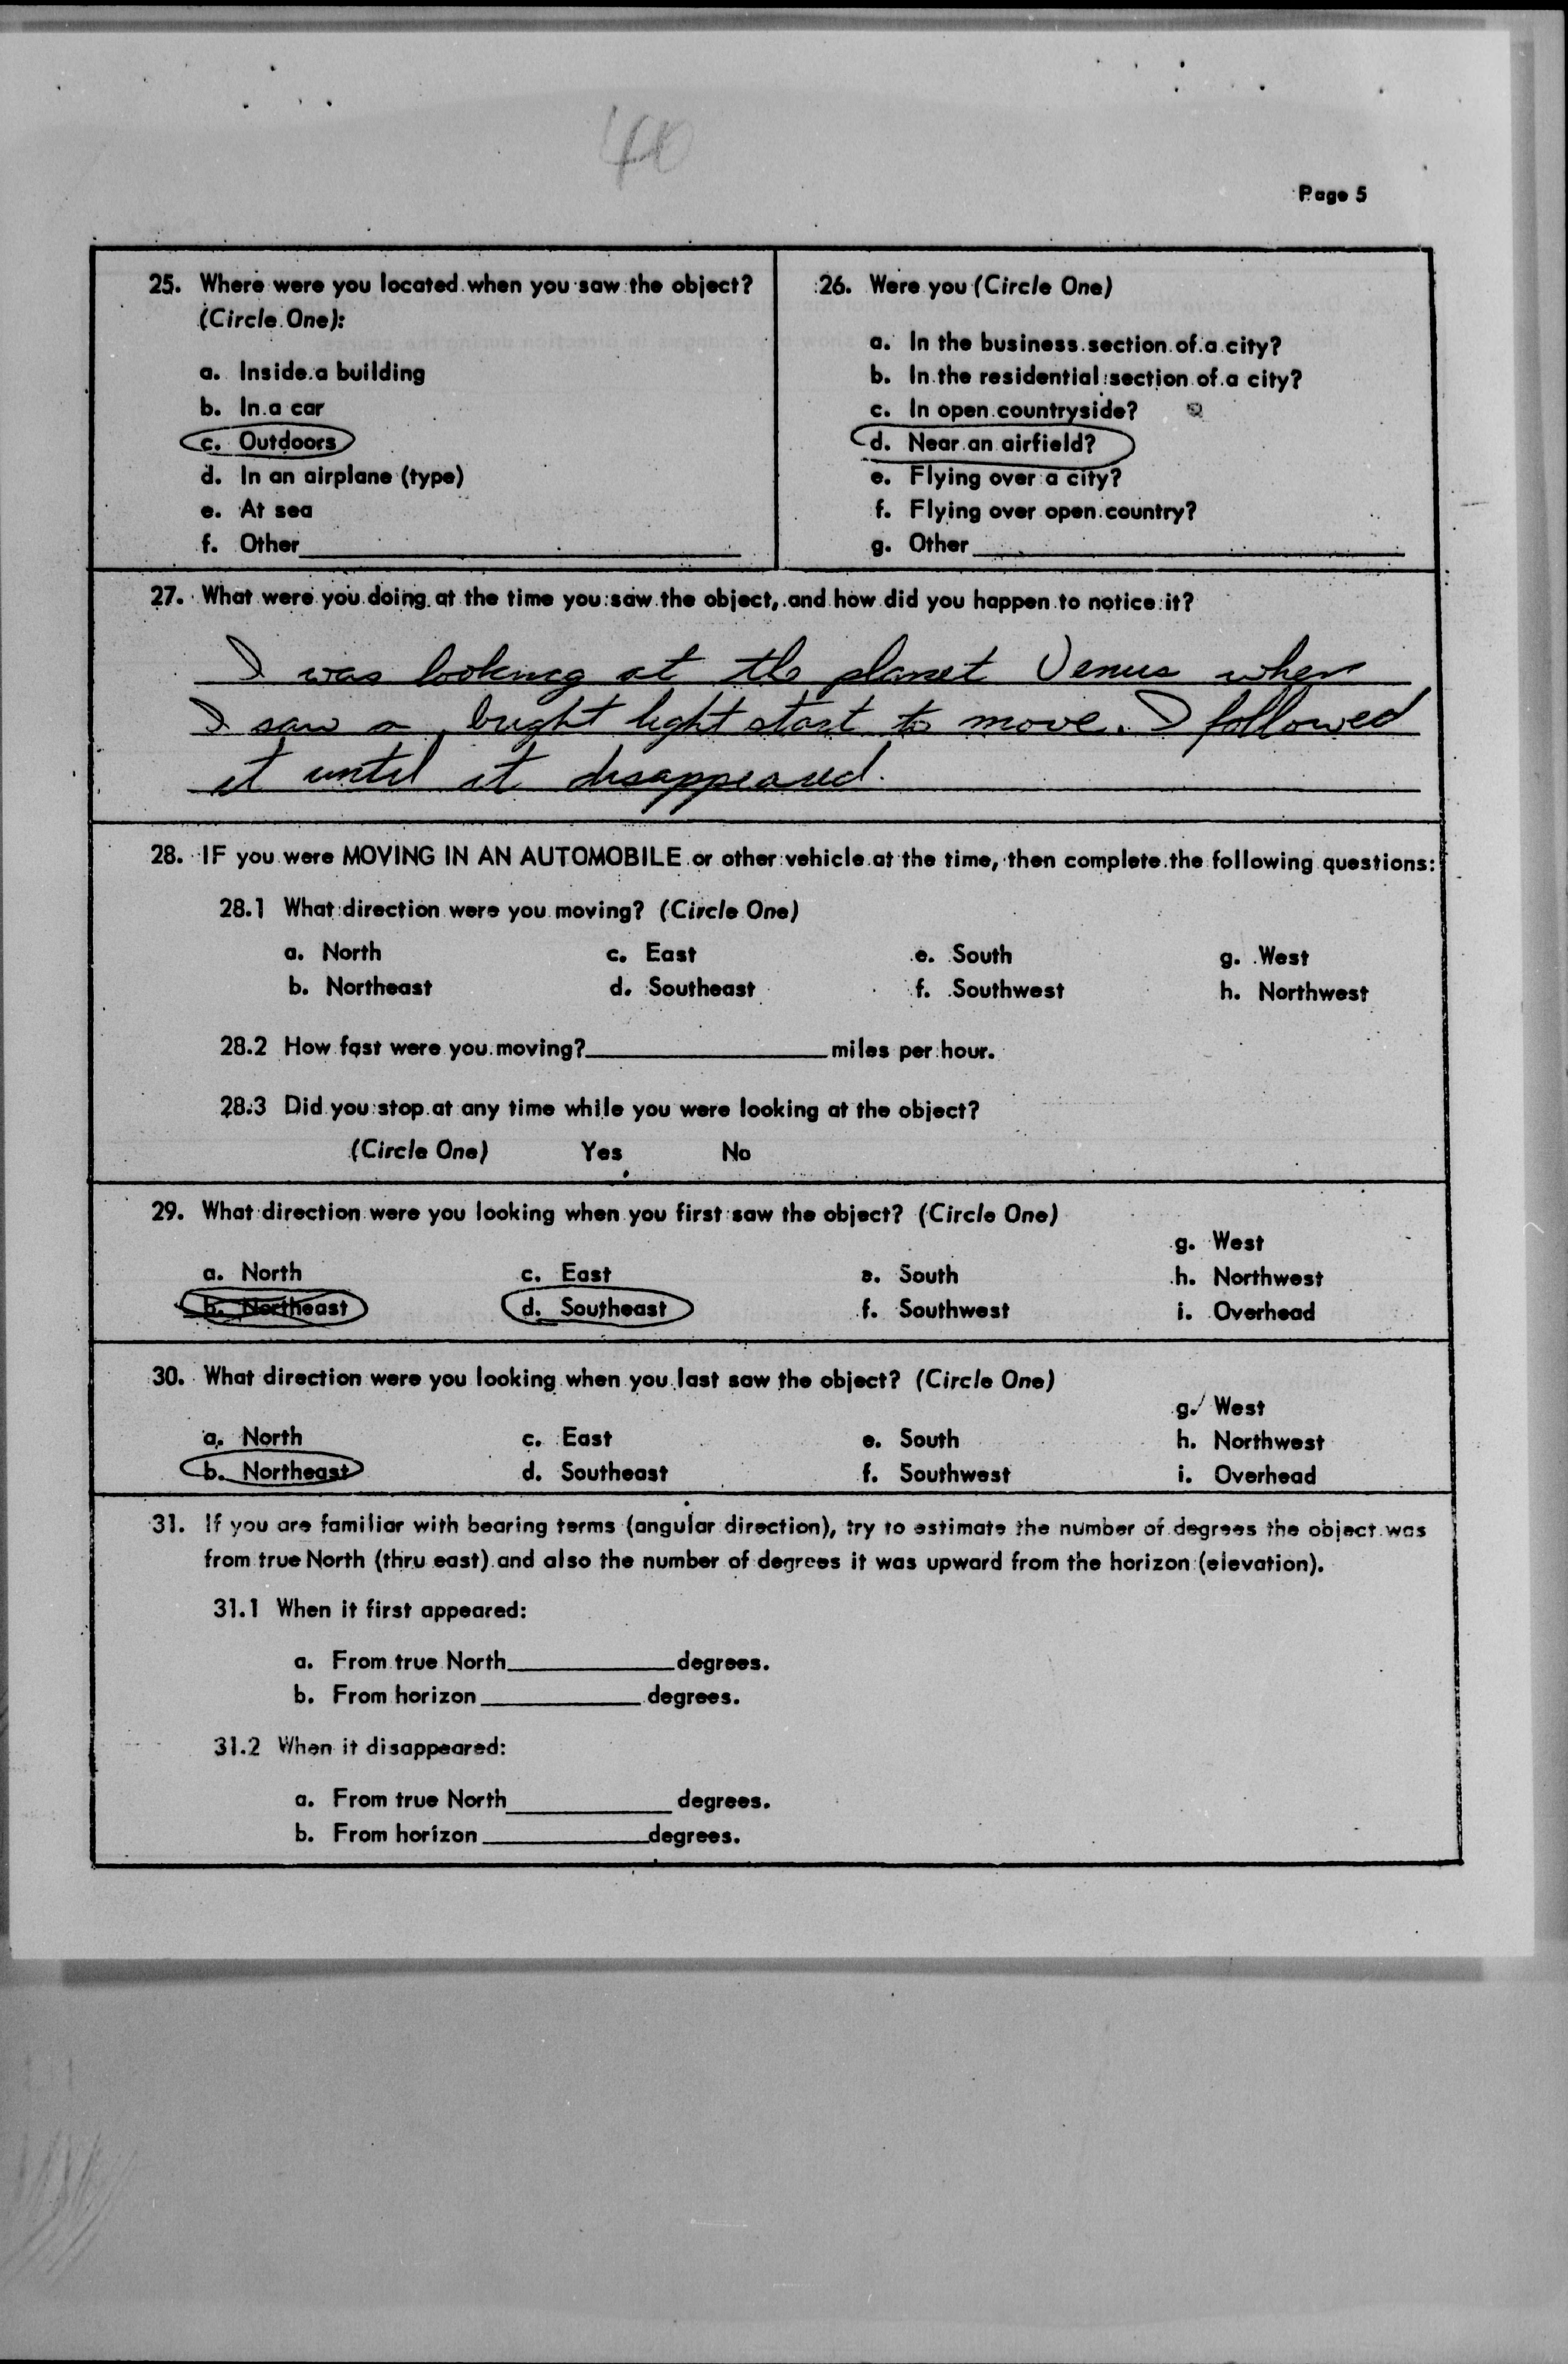 40
Page 5
25. Where were you located when you saw the object?
(Circle One):
a. Inside a building
b. In a car
c. Outdoors
d. In an airplane (type)
e. At sea
f. Other
26. Were you (Circle One)
a. In the business section of a city?
b. In the residential section of a city?
c. In open countryside?
d. Near an airfield?
e. Flying over a city?
f. Flying over open country?
g. Other
27. What were you doing at the time you saw the object, and how did you happen to notice it?
I was looking at the planet Venus when
I saw a bright light start to move. I followed
it until it disappeared.
28. IF you were MOVING IN AN AUTOMOBILE or other vehicle at the time, then complete the following questions:
28.1 What direction were you moving? (Circle One)
a. North c. East e. South g. West
b. Northeast d. Southeast f. Southwest h. Northwest
28.2 How fast were you moving? miles per hour.
28.3 Did you stop at any time while you were looking at the object?
(Circle One) Yes No
29. What direction were you looking when you first saw the object? (Circle One)
g. West
a. North c. East e. South h. Northwest
b. Northeast d. Southeast f. Southwest i. Overhead
30. What direction were you looking when you last saw the object? (Circle One)
g. West
a. North c. East e. South h. Northwest
b. Northeast d. Southeast f. Southwest i. Overhead
31. If you are familiar with bearing terms (angular direction), try to estimate the number of degrees the object was
from true North (thru east) and also the number of degrees it was upward from the horizon (elevation).
31.1 When it first appeared:
a. From true North degrees.
b. From horizon degrees.
31.2 When it disappeared:
a. From true North degrees.
b. From horizon degrees.